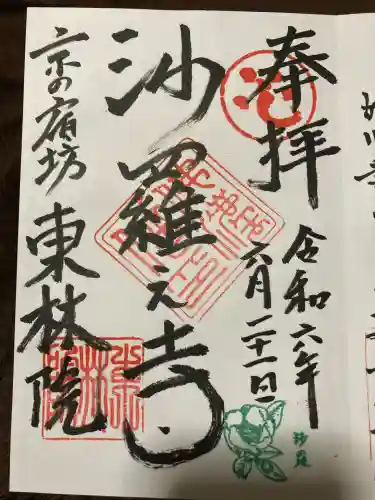 奉拝
令和六年
六月二十一日
沙羅之寺
京の宿坊
東林院
沙羅